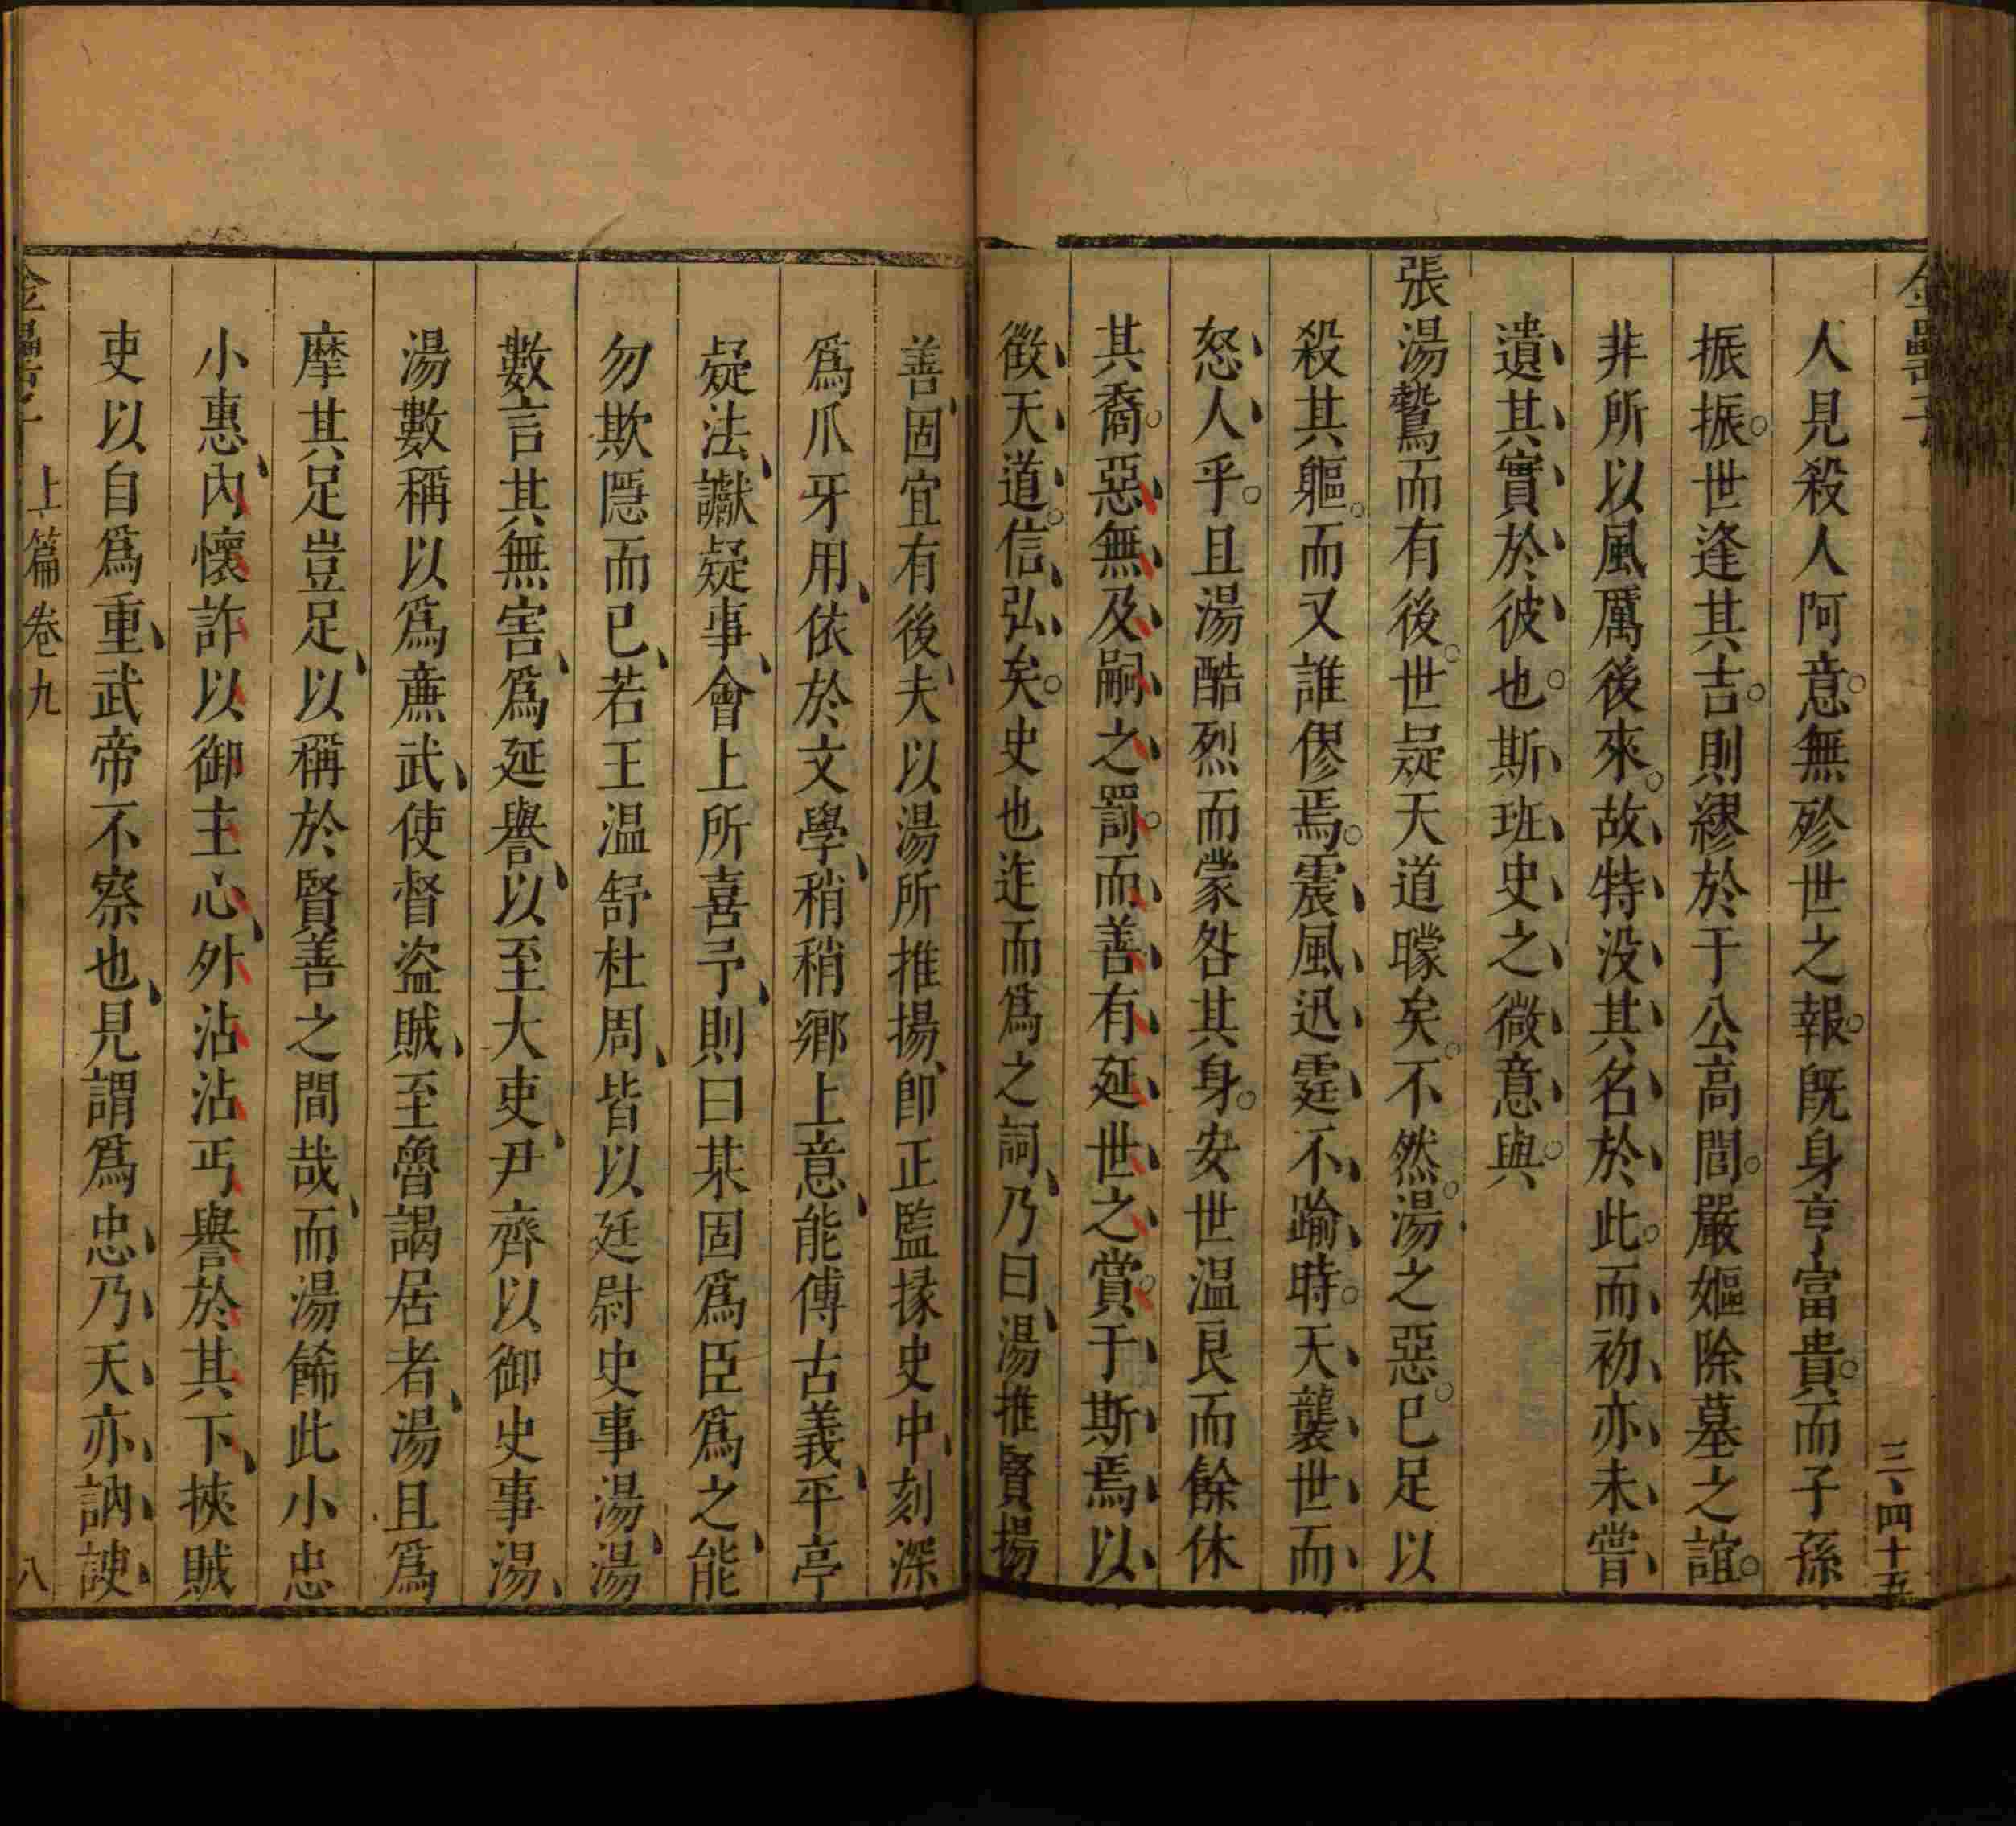 金罍子
三、四十五
人見殺人阿意無殄世之報旣身亨富貴而子孫
振振世逢其吉則繆於于公高閭嚴嫗除墓之誼
非所以風厲後來故特没其名於此而初亦未嘗
遺其實於彼也斯班史之微意與
張湯鷙而有後世疑天道曚矣不然湯之惡已足以
殺其軀而又誰僇焉震風迅霆不踰時天襲世而
怒人乎且湯酷烈而蒙咎其身安世温良而餘休
其裔惡無及嗣之罰而善有延世之賞于斯焉以
徵天道信弘矣史也迮而爲之詞乃曰湯推賢揚
善固宜有後夫以湯所推揚卽正監掾史中刻深
爲爪牙用依於文學稍稍鄉上意能傅古義平亭
疑法讞疑事會上所喜予則曰某固爲臣爲之能
勿欺隱而已若王温舒杜周皆以廷尉史事湯湯
數言其無害爲延譽以至大吏尹齊以御史事湯
湯數稱以爲亷武使督盗賊至魯謁居者湯且爲
摩其足豈足以稱於賢善之間哉而湯餙此小忠
小惠內懷詐以御主心外沾沾丐譽於其下挾賊
吏以自爲重武帝不察也見謂爲忠乃天亦訥諛
上篇卷九
八